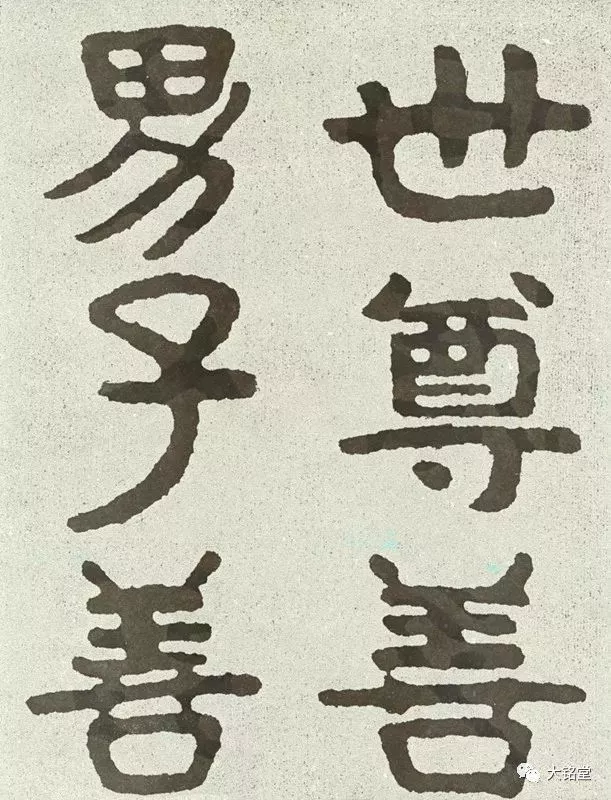 世尊善
男子善
大铭堂